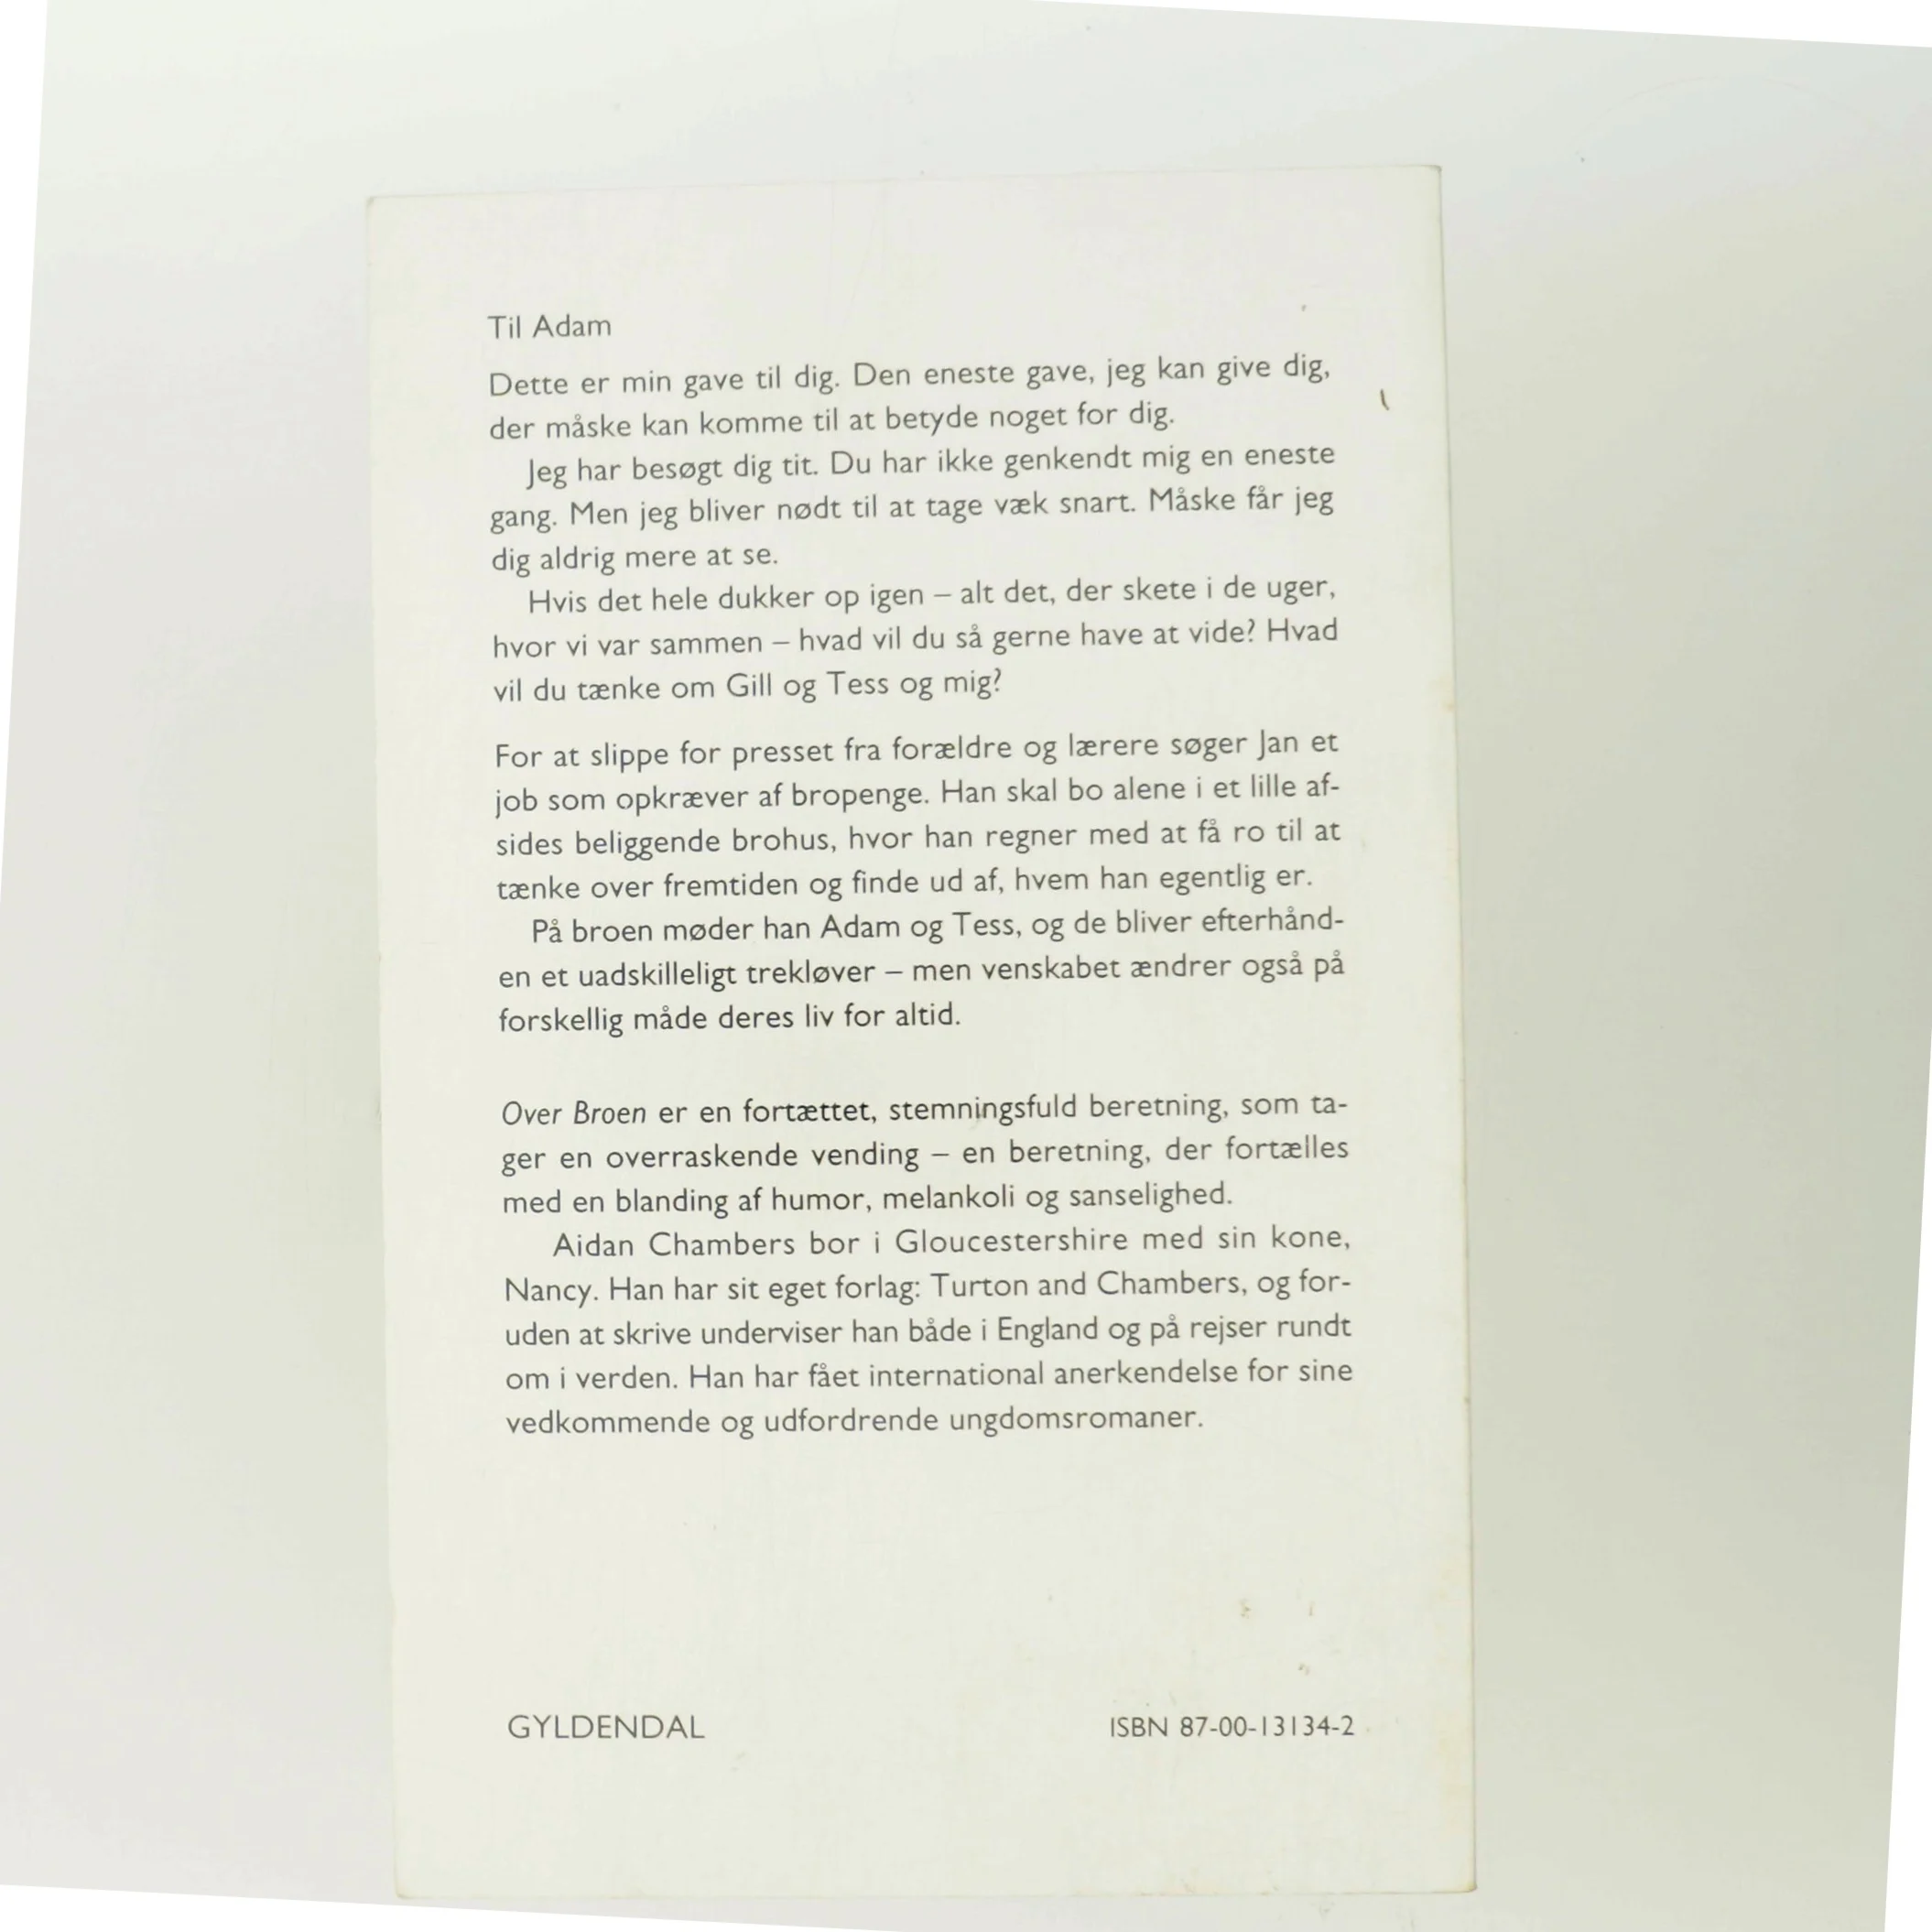 Til Adam
Dette er min gave til dig. Den eneste gave, jeg kan give dig,
der måske kan komme til at betyde noget for dig.
Jeg har besøgt dig tit. Du har ikke genkendt mig en eneste
gang. Men jeg bliver nødt til at tage væk snart. Måske får jeg
dig aldrig mere at se.
Hvis det hele dukker op igen – alt det, der skete i de uger,
hvor vi var sammen – hvad vil du så gerne have at vide? Hvad
vil du tænke om Gill og Tess og mig?
For at slippe for presset fra forældre og lærere søger Jan et
job som opkræver af bropenge. Han skal bo alene i et lille af-
sides beliggende brohus, hvor han regner med at få ro til at
tænke over fremtiden og finde ud af, hvem han egentlig er.
På broen møder han Adam og Tess, og de bliver efterhånd-
en et uadskilleligt trekløver – men venskabet ændrer også på
forskellig måde deres liv for altid.
Over Broen er en fortættet, stemningsfuld beretning, som ta-
ger en overraskende vending – en beretning, der fortælles
med en blanding af humor, melankoli og sanselighed.
Aidan Chambers bor i Gloucestershire med sin kone,
Nancy. Han har sit eget forlag: Turton and Chambers, og for-
uden at skrive underviser han både i England og på rejser rundt
om i verden. Han har fået international anerkendelse for sine
vedkommende og udfordrende ungdomsromaner.
GYLDENDAL
ISBN 87-00-13134-2